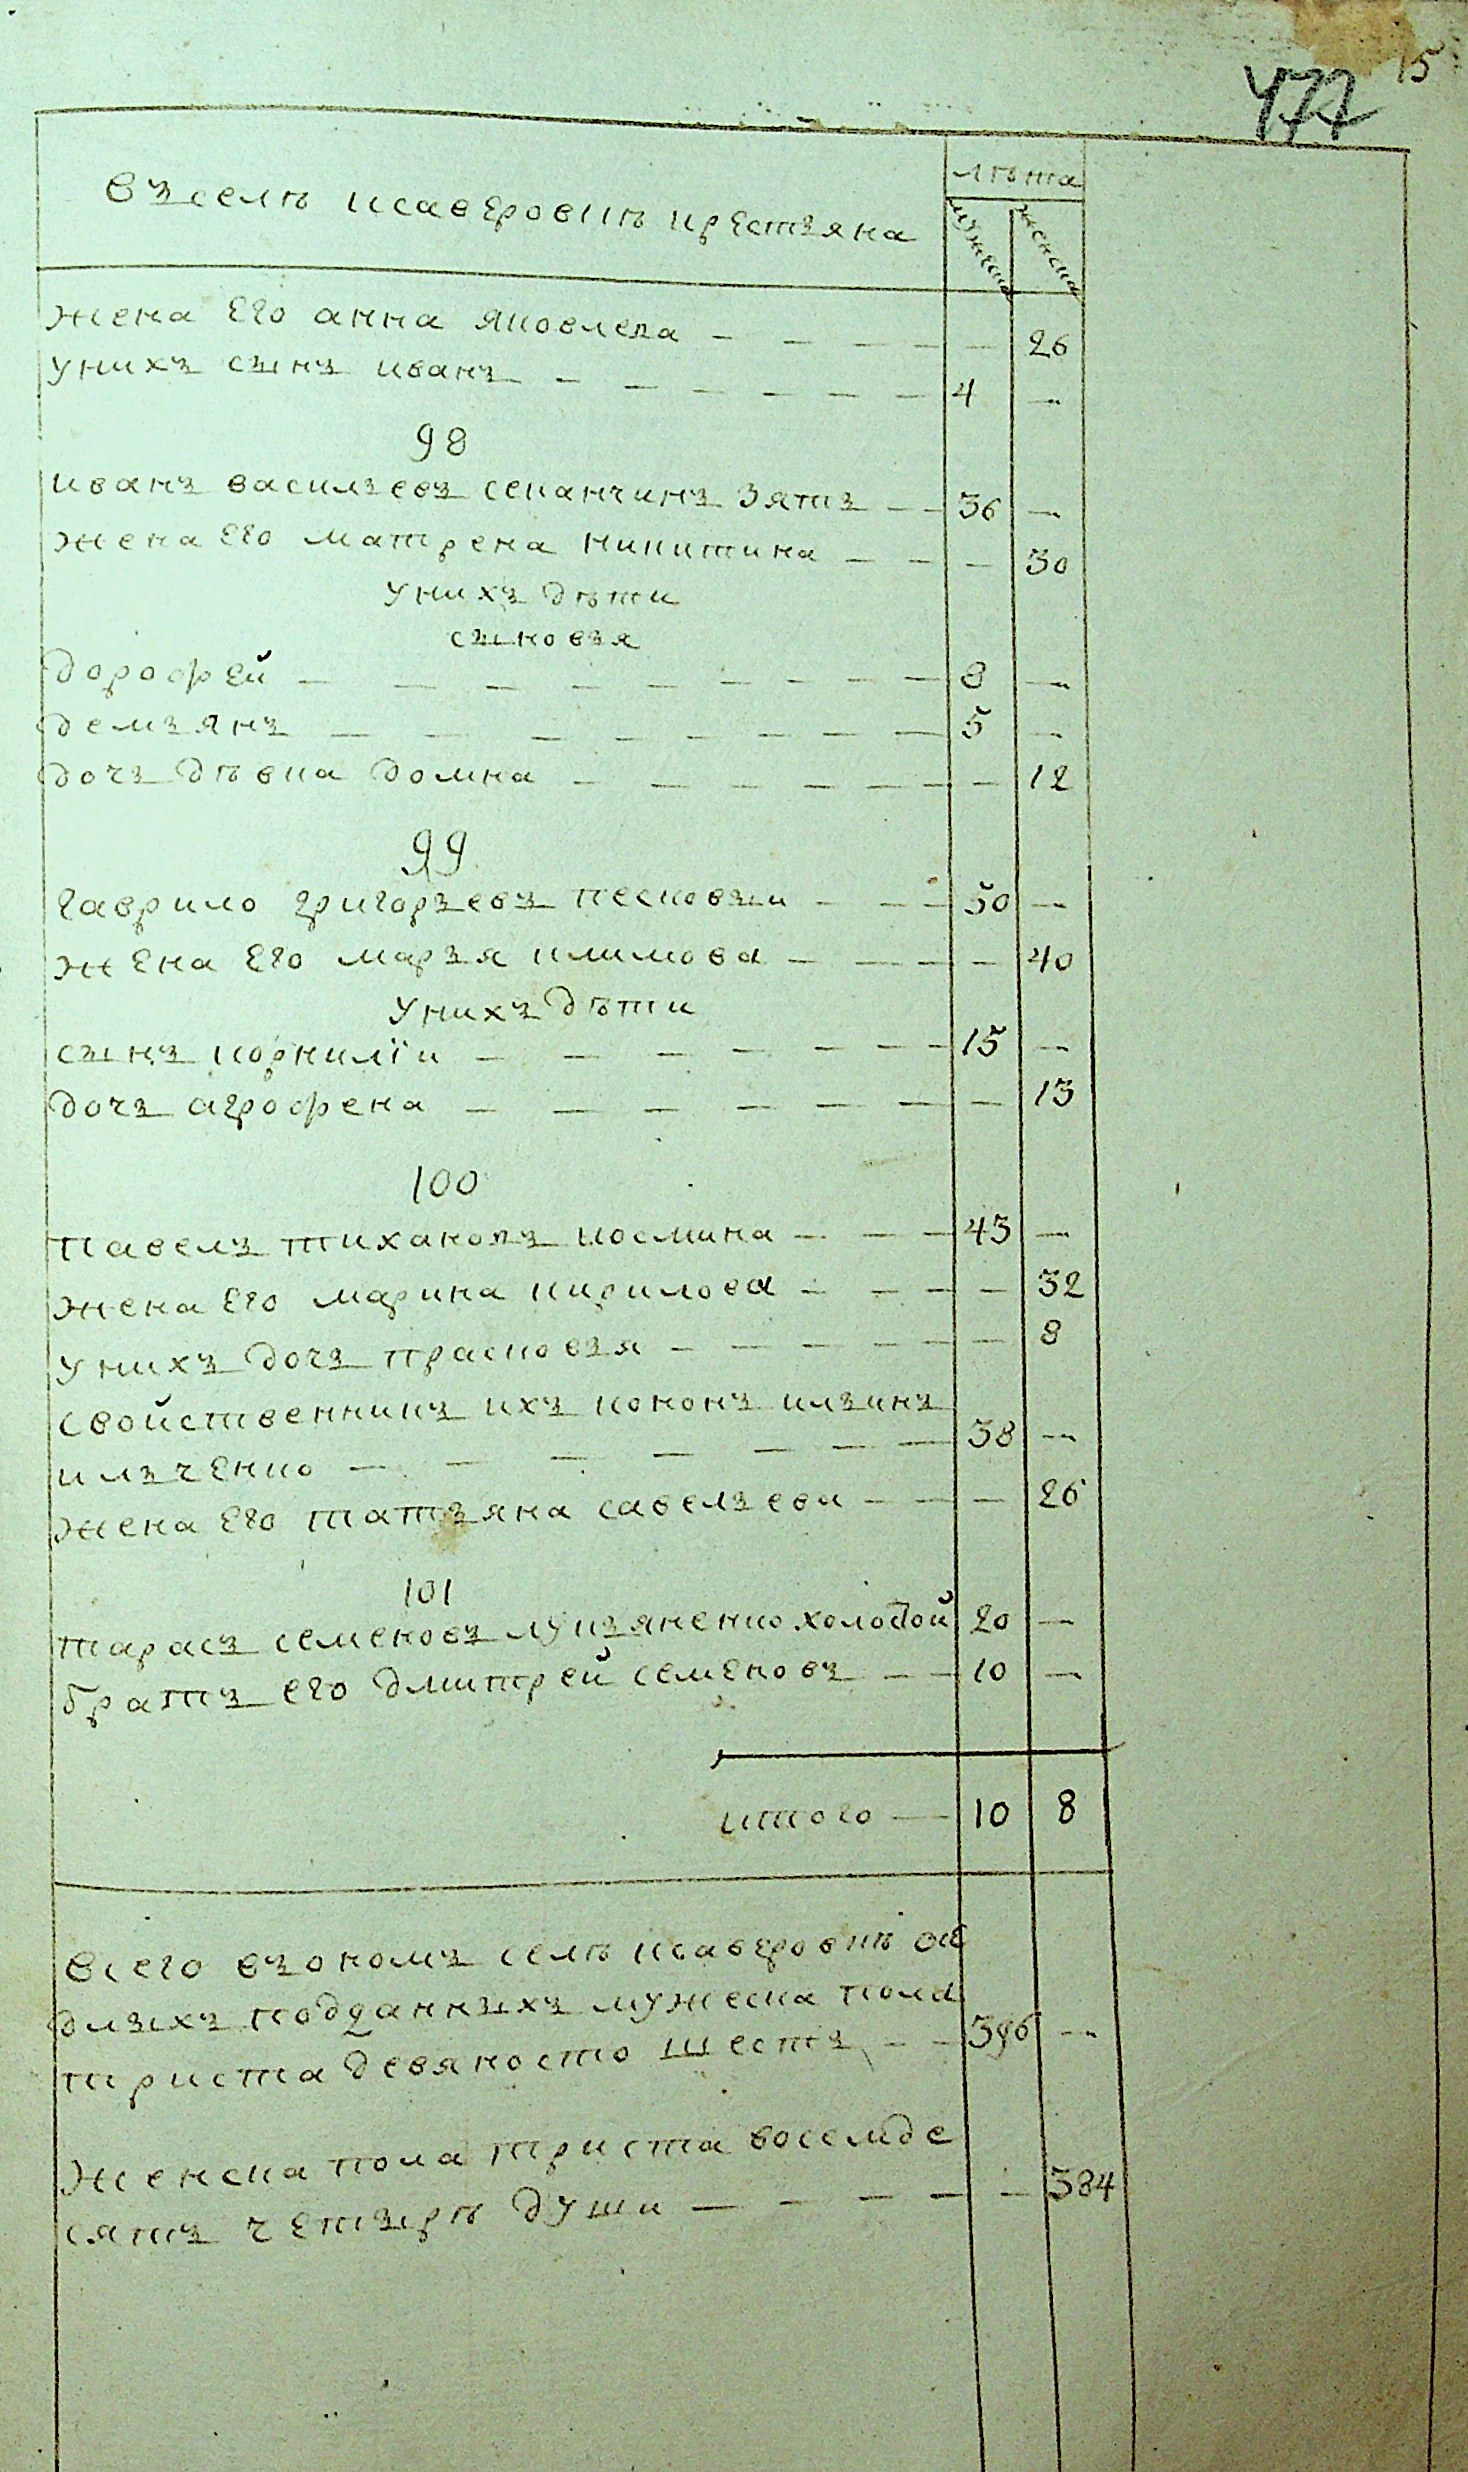 15
477
въ селѣ исаверовкѣ крестьяна
лѣта
мужеска
женска
жена его анна яковлева — 26
у нихъ сынъ иванъ — 4 —
98
иванъ васильевъ сенанчинъ зять — 36 —
жена его матрена никитина — 30
у нихъ дѣти
сыновья
дорофей — 8 —
демьянъ — 5 —
дочь дѣвка домна — 12
99
гаврило григорьевъ песковыи — 50 —
жена его марья климова — 40
у нихъ дѣти
сынъ корнилїи — 15 —
дочь агрофена — 13
100
павелъ тихановъ космина — 43 —
жена его марина кирилова — 32
у нихъ дочь прасковья — 8
свойственникъ ихъ кононъ ильинъ
ильченко — 38 —
жена его татьяна савельева — 26
101
тарасъ семеновъ лукьяненко холостой 20 —
братъ его дмитрей семеновъ — 10 —
итого — 10 8
всего въ ономъ селѣ исаверовкѣ об
длыхъ подданныхъ мужеска пола
триста девяносто шесть — 396 —
женска пола триста восемде
сятъ четырѣ души — 384